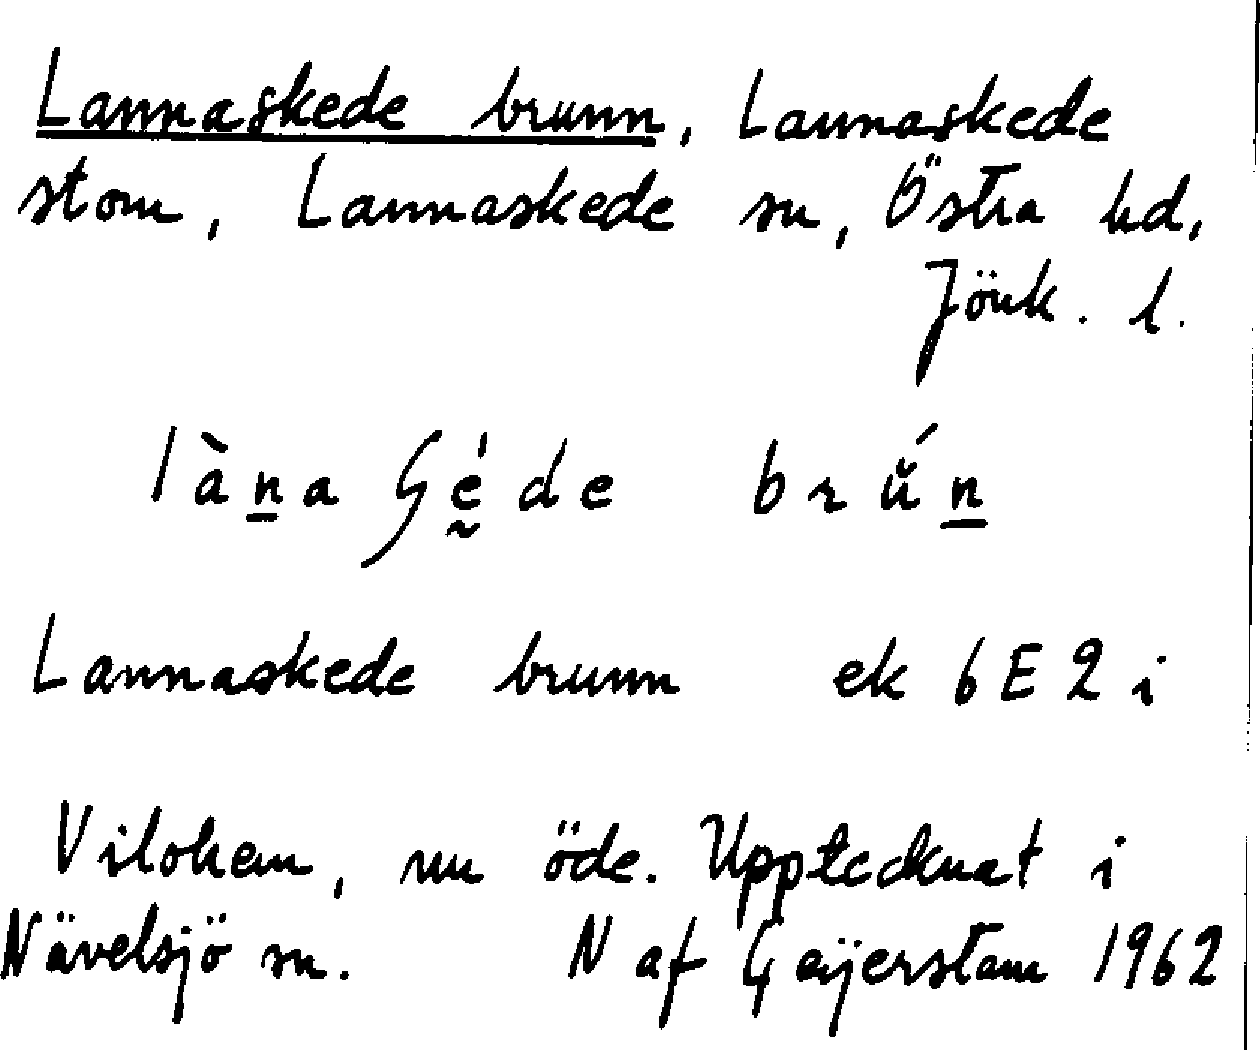 Lannaskede brunn, Lannaskede
stom, Lannaskede sn, Östra hd,
Jönk. l.
Lannaskede brunn ek 6E2 i
Vilohem, nu öde. Upptecknat i
Nävelsjö sn. N af Geijerstam 1962